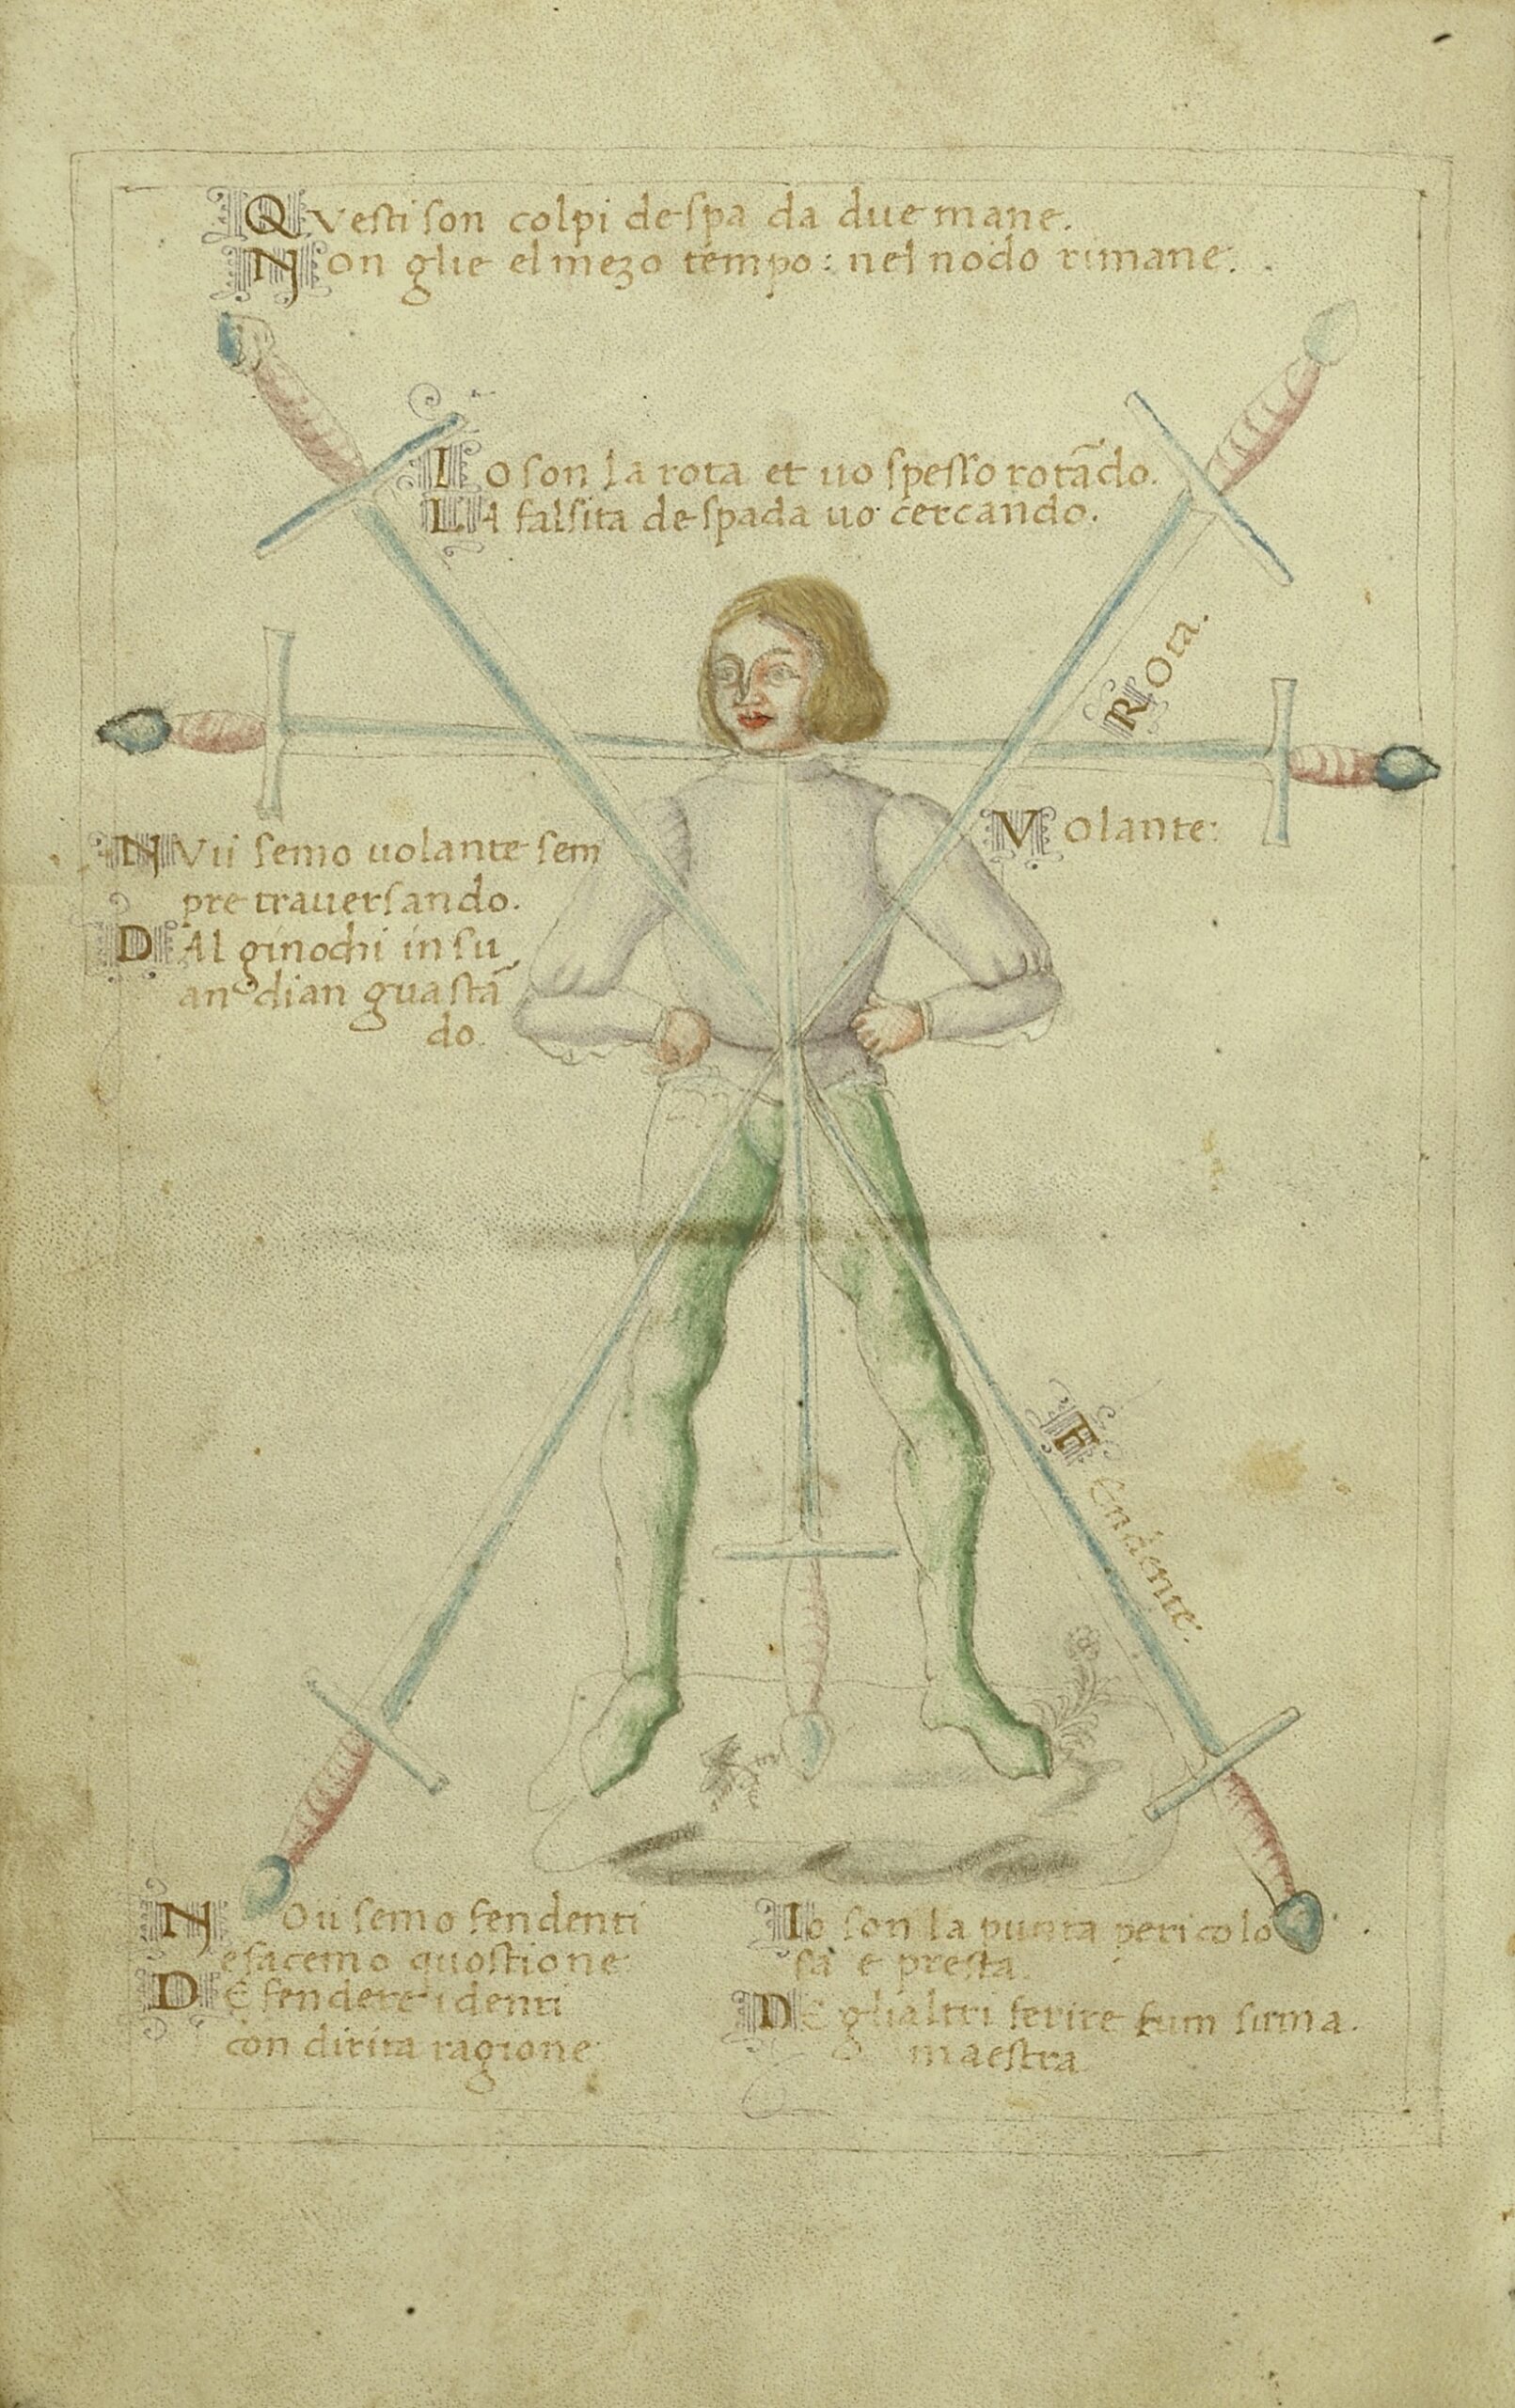 QVesti son colpi de spa da due mane.
NOn glie el mezo tempo: nel nodo rimane.
Io son la rota et uo spesso rotãdo.
LA falsita de spada uo cercando.
ROta.
VOlante:
NVii semo uolante sem
pre trauersando.
DAl ginochi in su
andian guastã
do.
FEndente.
NOii semo fendenti
e facemo questione
DE fendere i denti
con dirita ragione
Io son la punta pericolo
sa e presta.
DE glialtri ferire sum
maestra